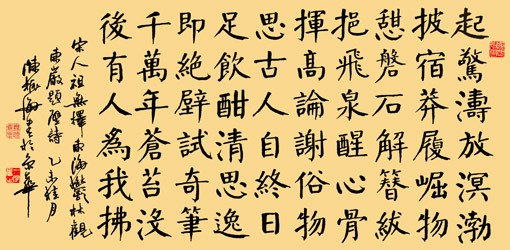 起驚濤放溟渤
披宿莽履崛物
憇磐石解簪紱
挹飛泉醒心骨
揮高論謝俗物
思古人自終日
足飲酣清思逸
即絕壁試奇筆
千萬年蒼苔沒
後有人為我拂
宋人祖無擇東海鬱林觀
東巖題壁詩 乙未桂月
書於京華